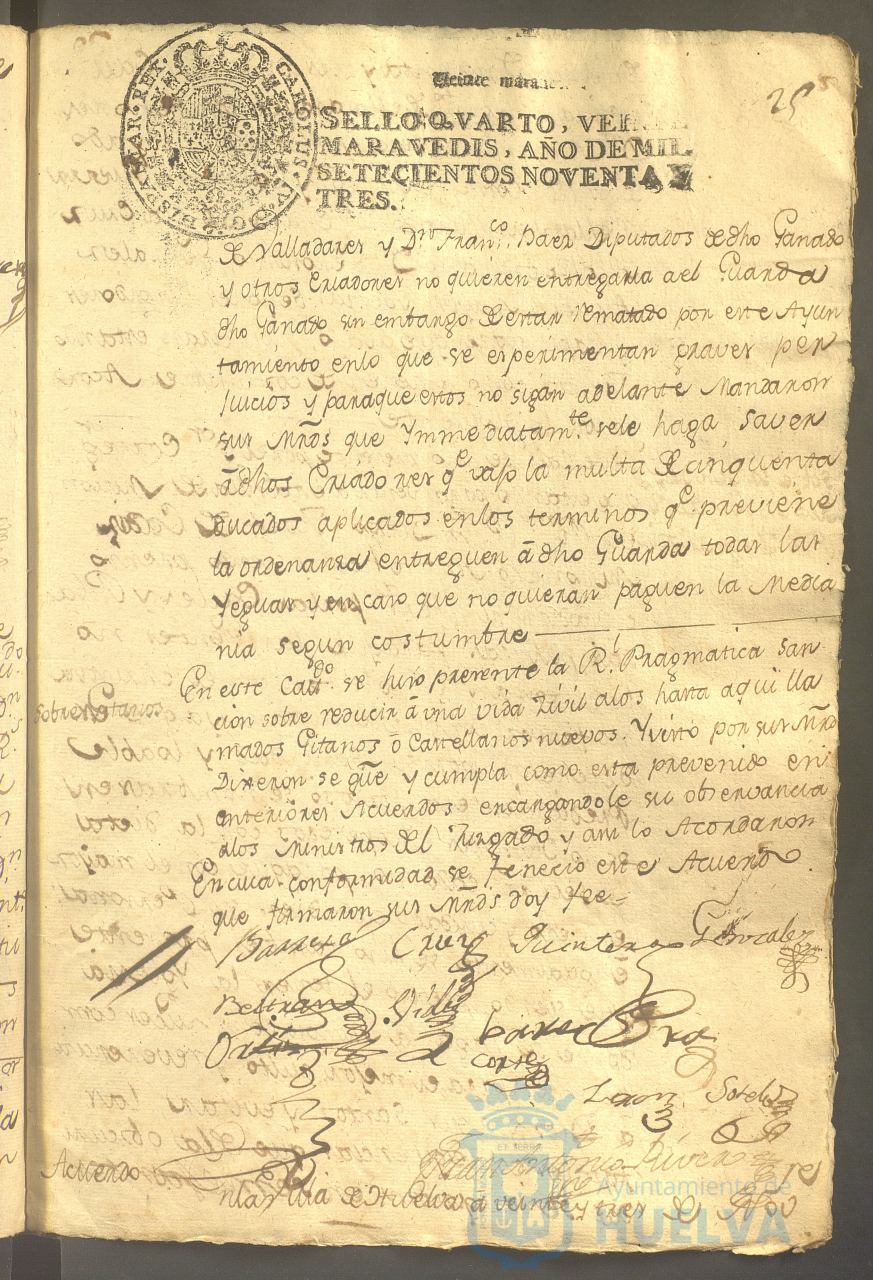 25
Veinte marave
CAROLUS IV D G HISPANIAR REX
SELLO QVARTO, VEINTE
MARAVEDIS, AÑO DE MIL
SETECIENTOS NOVENTA Y
TRES.
de Valladares y Dn Franco. Baez Diputados de dho Ganado
y otros Criadores no quieren entregarla a el Guarda
dho Ganado sin embargo de estar rematado por este Ayun
tamiento en lo que se experimentan graves per
juicios y para que estos no sigan adelante Mandaron
sus Mrds que Ymmediatamte. se le haga saver
â dhos Criadores qe vajo la multa de cinquenta
ducados aplicados en los terminos qe previene
la ordenanza entreguen â dho Guarda todas las
Yeguas y en caso que no quieran paguen la Media
nia segun costumbre
sobre Gitanos
En este Cavdo se hizo presente la Rl Pragmatica san
cion sobre reducir â una vida Zivil a los hasta aqui lla
mados Gitanos ô Castellanos nuevos. Y visto por sus Mrds
Dixeron se gue y cumpla como esta prevenido en
anteriores Acuerdos encargandole su observancia
a los Ministros del Juzgado y assi lo Acordaron
En cuia conformidad se fenecio este Acuerdo
que firmaron sus Mrds doy fee
Barreda Cruz Quintero Gonzalez
Beltran
Ortiz
Cortes
Leon Sotelo
Juan Antonio Rivera
Acuerdo
En la Villa de Huelva a veinte y tres de Nov
Ayuntamiento de
HUELVA